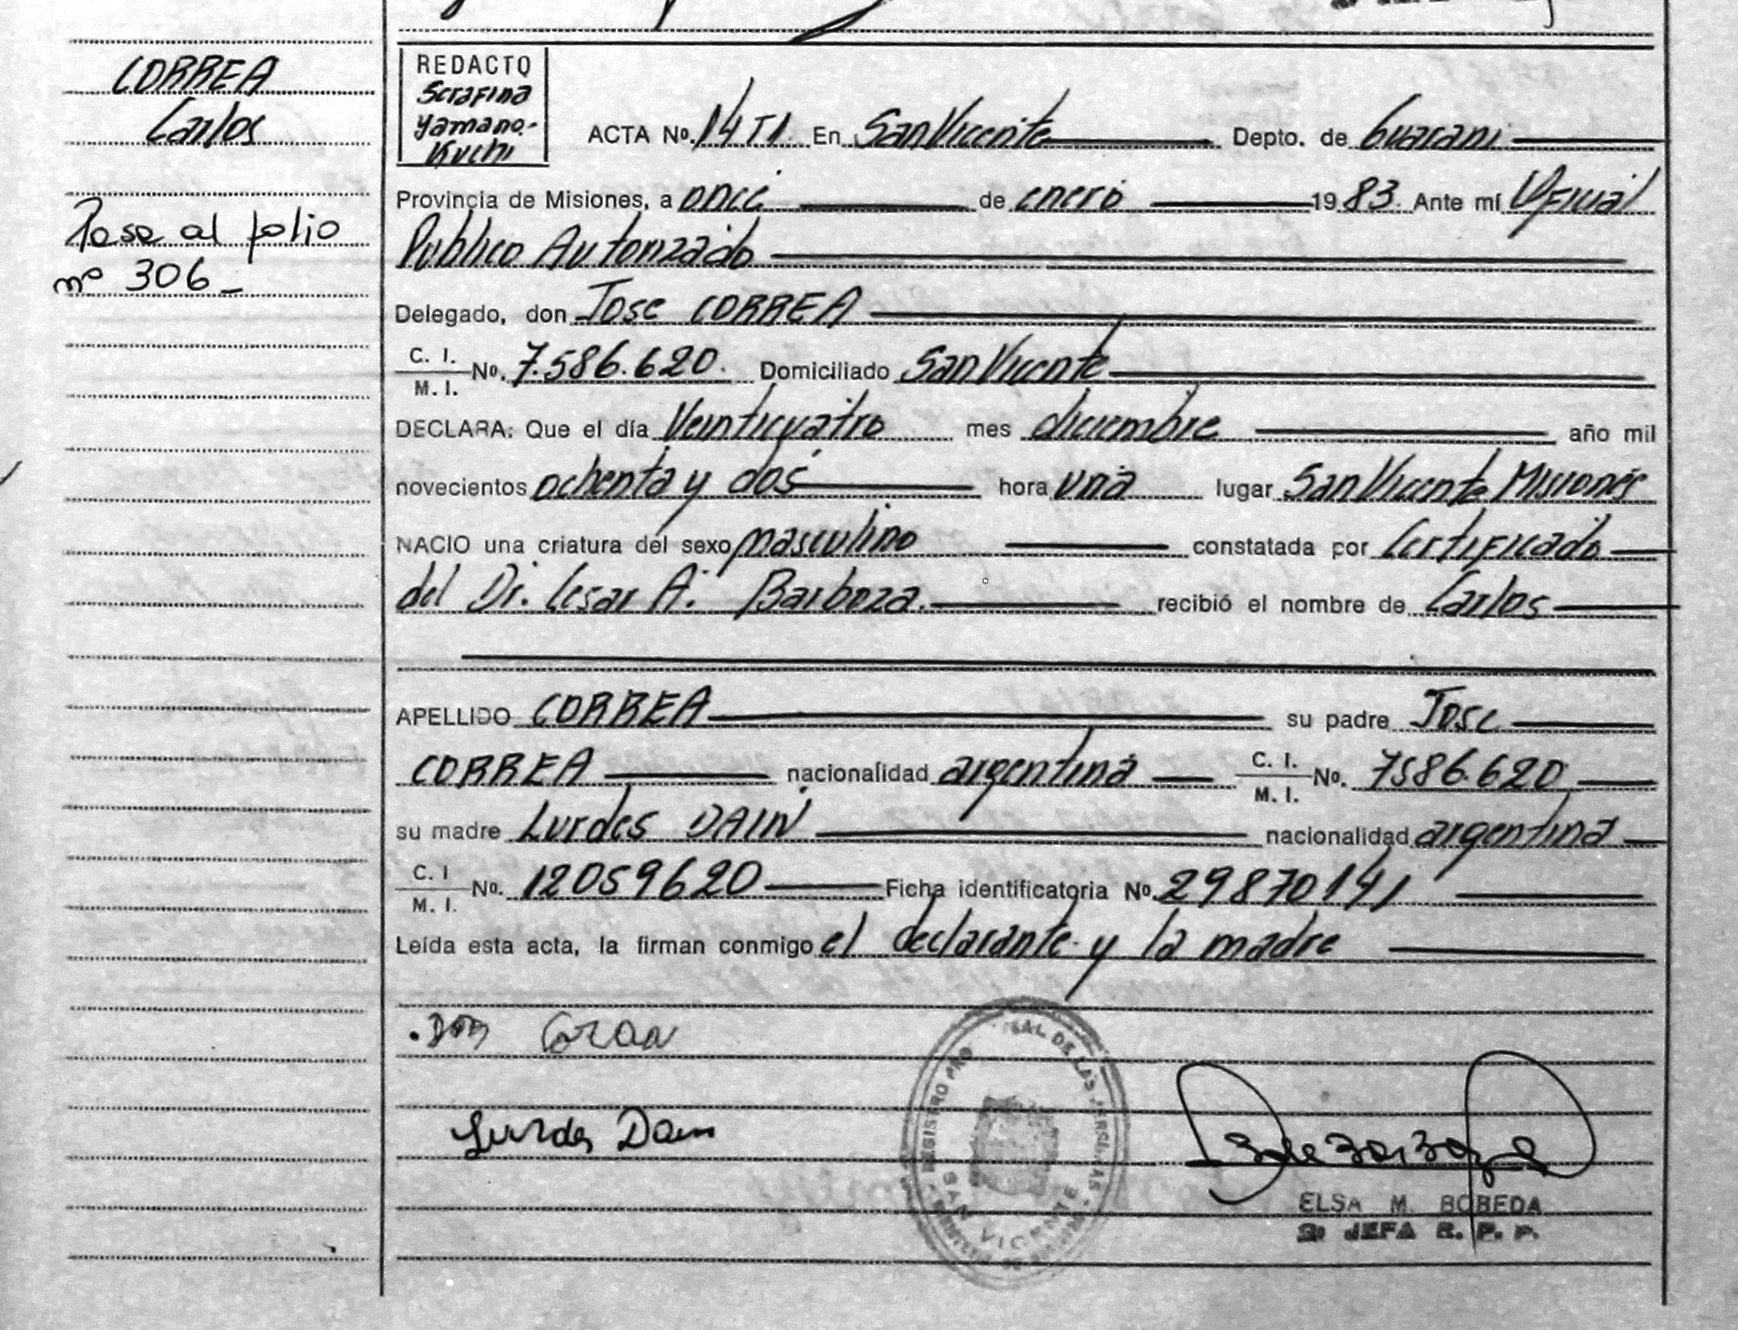 CORREA
Carlos
Pase al folio
nº 306_
REDACTO
Serafina
Yamano-
Kuchi
ACTA Nº. 14 TI. En San Vicente Depto. de Guarani
Provincia de Misiones, a once de enero 1983. Ante mí Oficial
Publico Autorizado
Delegado, don Jose CORREA
C. I. / M. I. Nº. 7.586.620. Domiciliado San Vicente
DECLARA: Que el día Veinticuatro mes diciembre año mil
novecientos ochenta y dos hora una lugar San Vicente Misiones
NACIO una criatura del sexo masculino constatada por Certificado
del Dr. Cesar A. Barboza. recibió el nombre de Carlos
APELLIDO CORREA su padre Jose
CORREA nacionalidad argentina C. I. / M. I. Nº. 7586.620
su madre Lurdes DAIN nacionalidad argentina
C. I / M. I. Nº. 12059620 Ficha identificatoria Nº. 29870141
Leída esta acta, la firman conmigo el declarante y la madre
Lurdes Dain
REGISTRO PRO DE LAS PERSONAS
SAN VICENTE
ELSA M. BOBEDA
JEFA R. P. P.